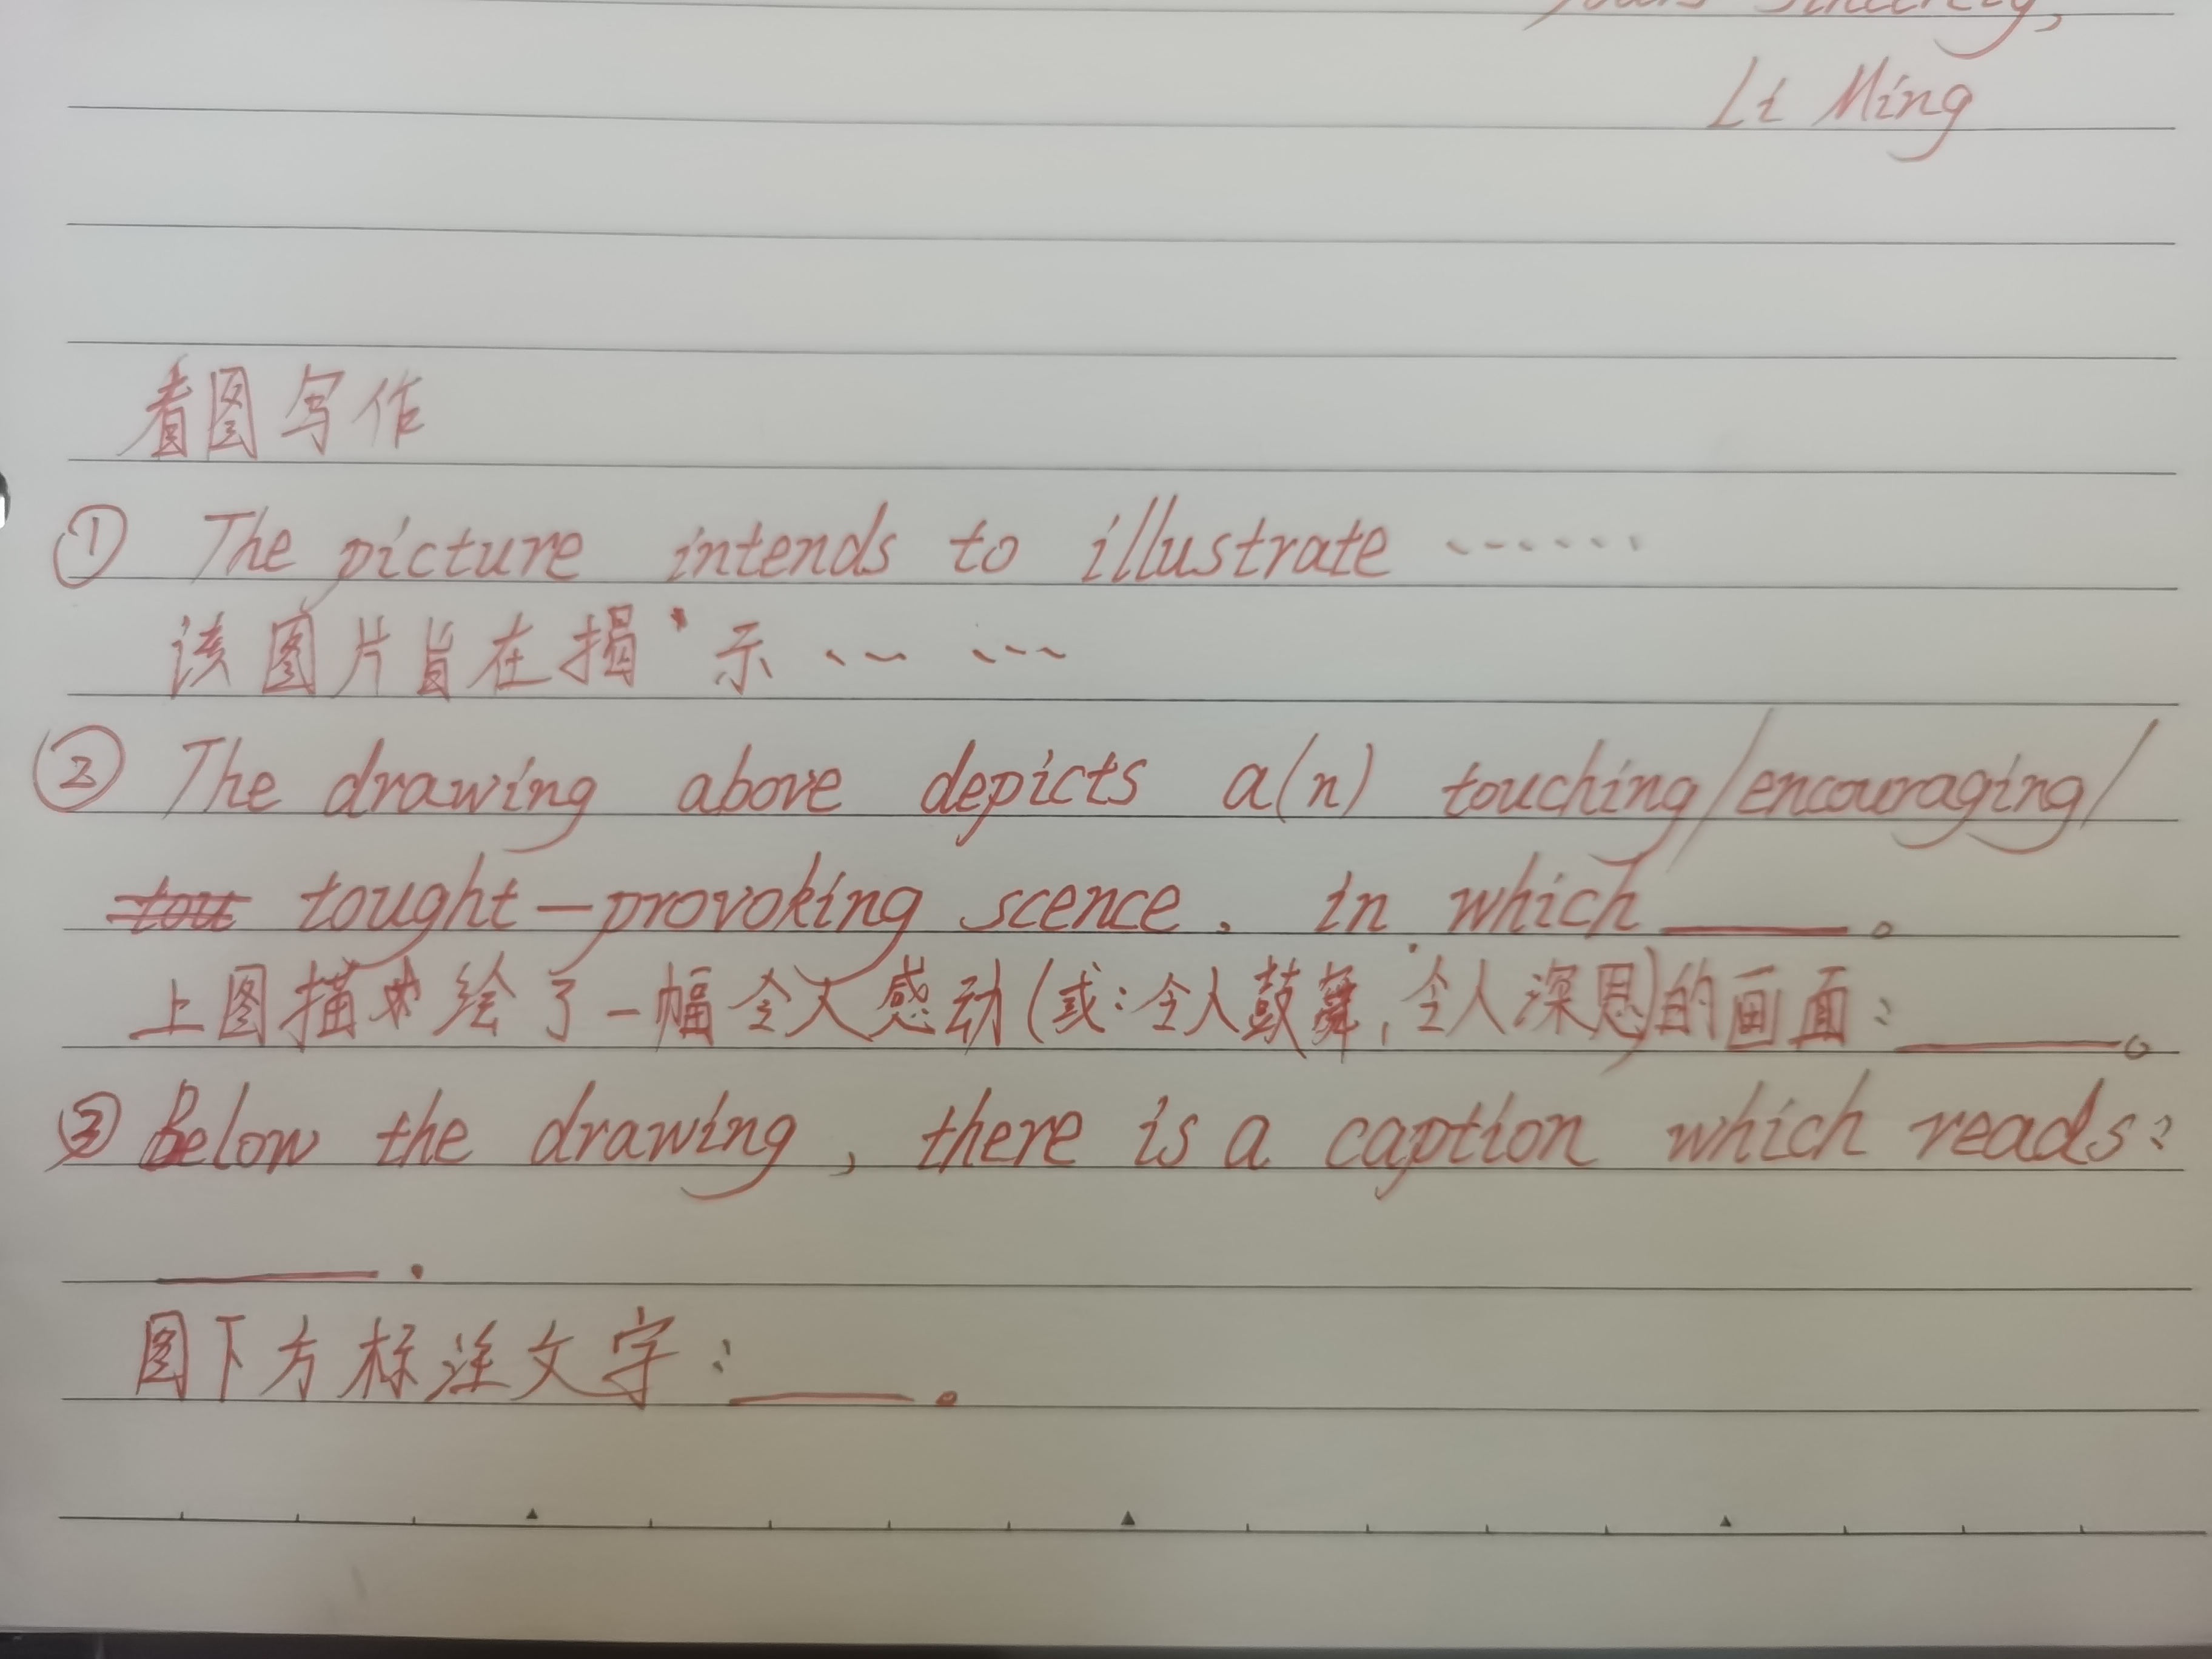 Yours sincerely,
Li Ming
看图写作
① The picture intends to illustrate ……
该图片旨在揭示 … …
② The drawing above depicts a(n) touching/encouraging/
tou tought-provoking scence, in which______。
上图描绘了一幅令人感动(或:令人鼓舞,令人深思)的画面:______。
③ Below the drawing, there is a caption which reads:
______.
图下方标注文字:______.